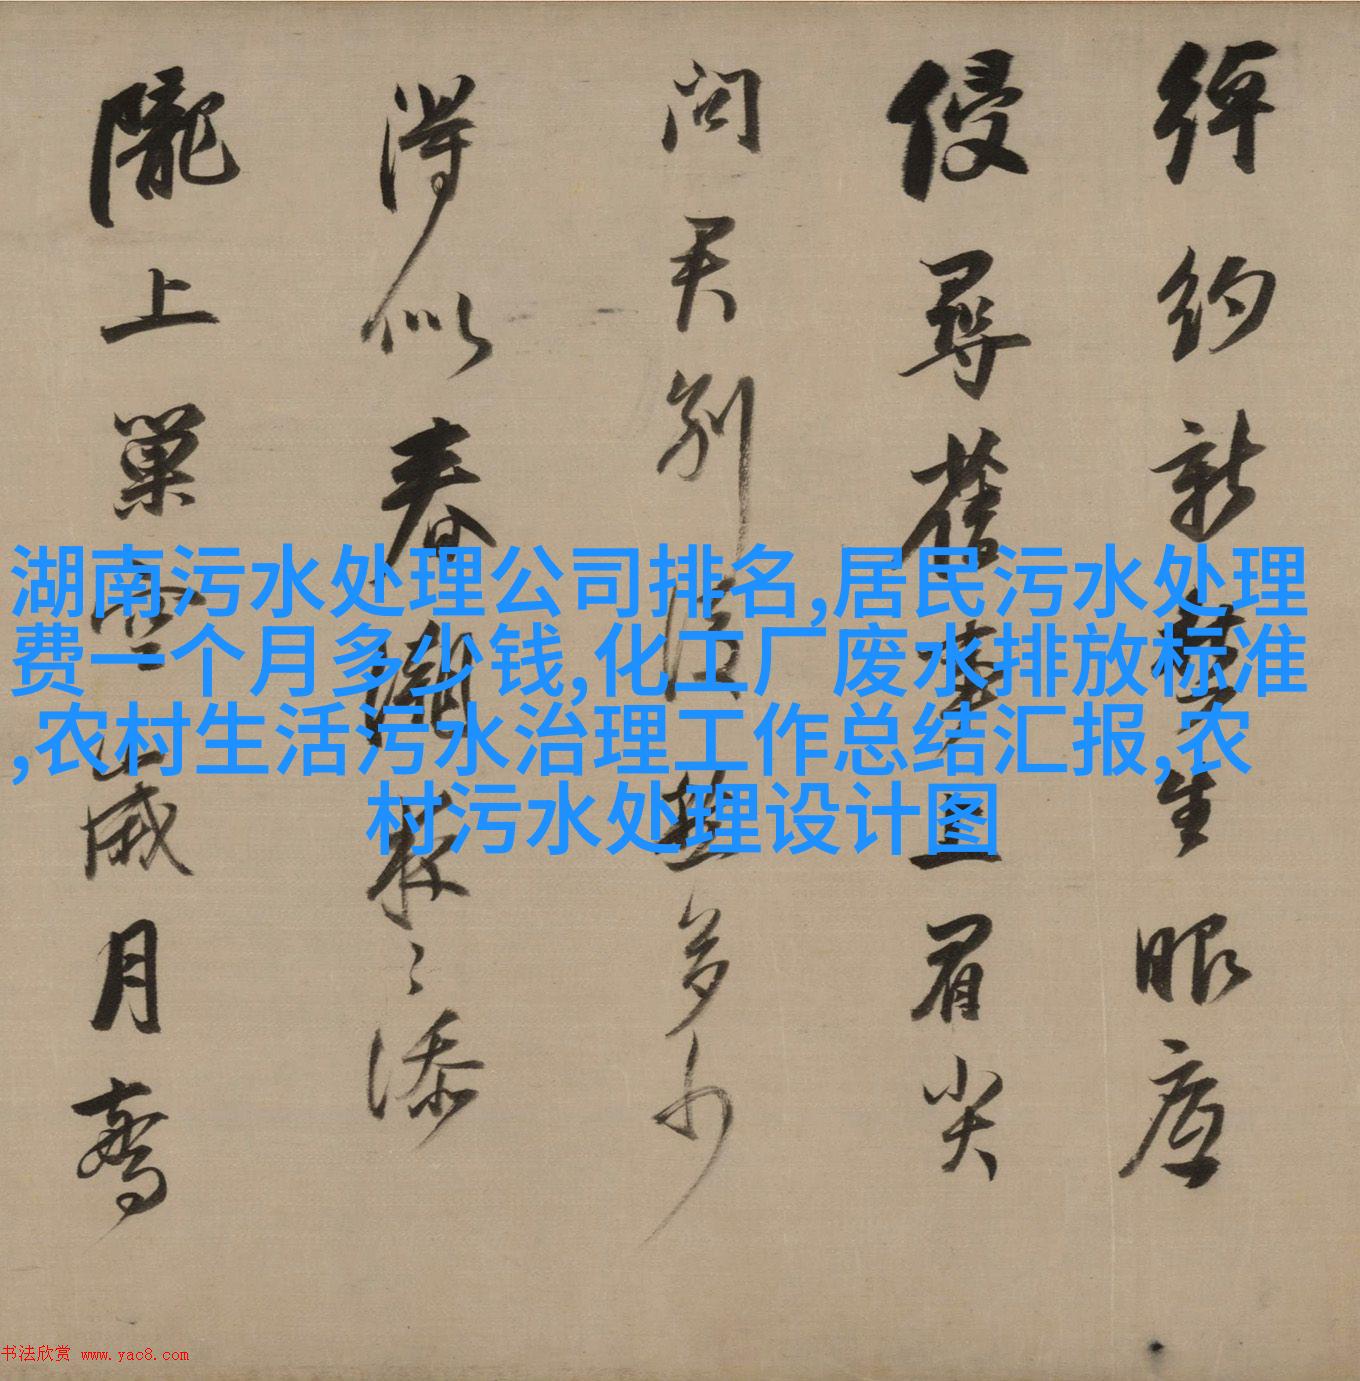 綽約新生眼底
侵尋舊事上眉尖
問君別後愁多少
得似春潮夜々添
隴上巢空歲月驚
湖南污水处理公司排名,居民污水处理
费一个月多少钱,化工厂废水排放标准
,农村生活污水治理工作总结汇报,农
村污水处理设计图
书法欣赏 www.yac8.com